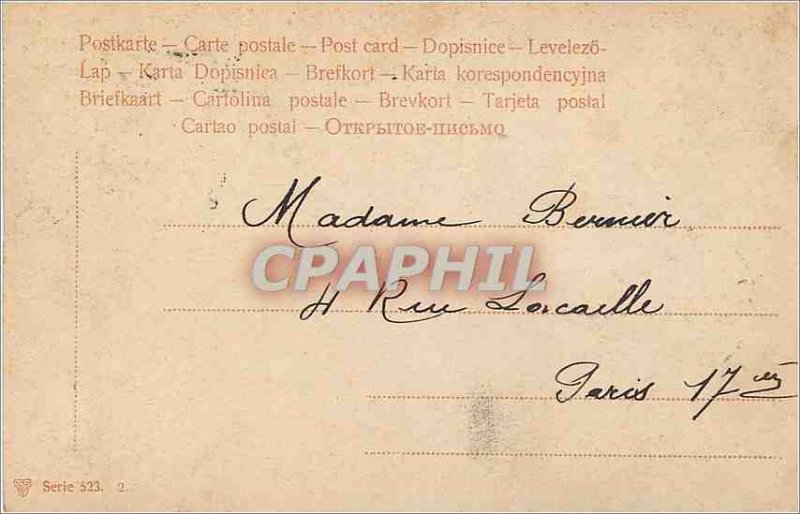 Postkarte – Carte postale – Post card – Dopisnice – Levelező-
Lap – Karta Dopisnica – Brefkort – Karta korespondencyjna
Briefkaart – Cartolina postale – Brevkort – Tarjeta postal
Cartao postal – Открытое-письмо
Madame Bernier
CPAPHIL
4 Rue Lacaille
Paris 17 em
Serie 523. 2.